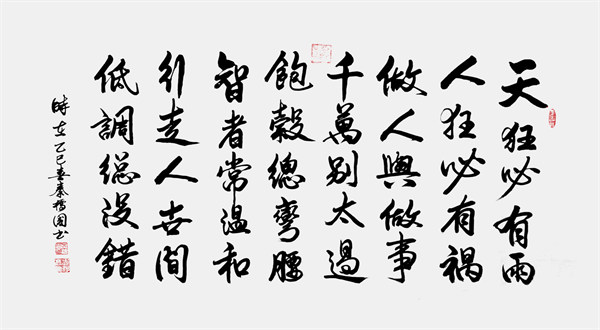 天狂必有雨
人狂必有禍
做人與做事
千萬别太過
飽穀總彎腰
智者常温和
行走人世間
低調総没錯
時在乙巳春秦国书